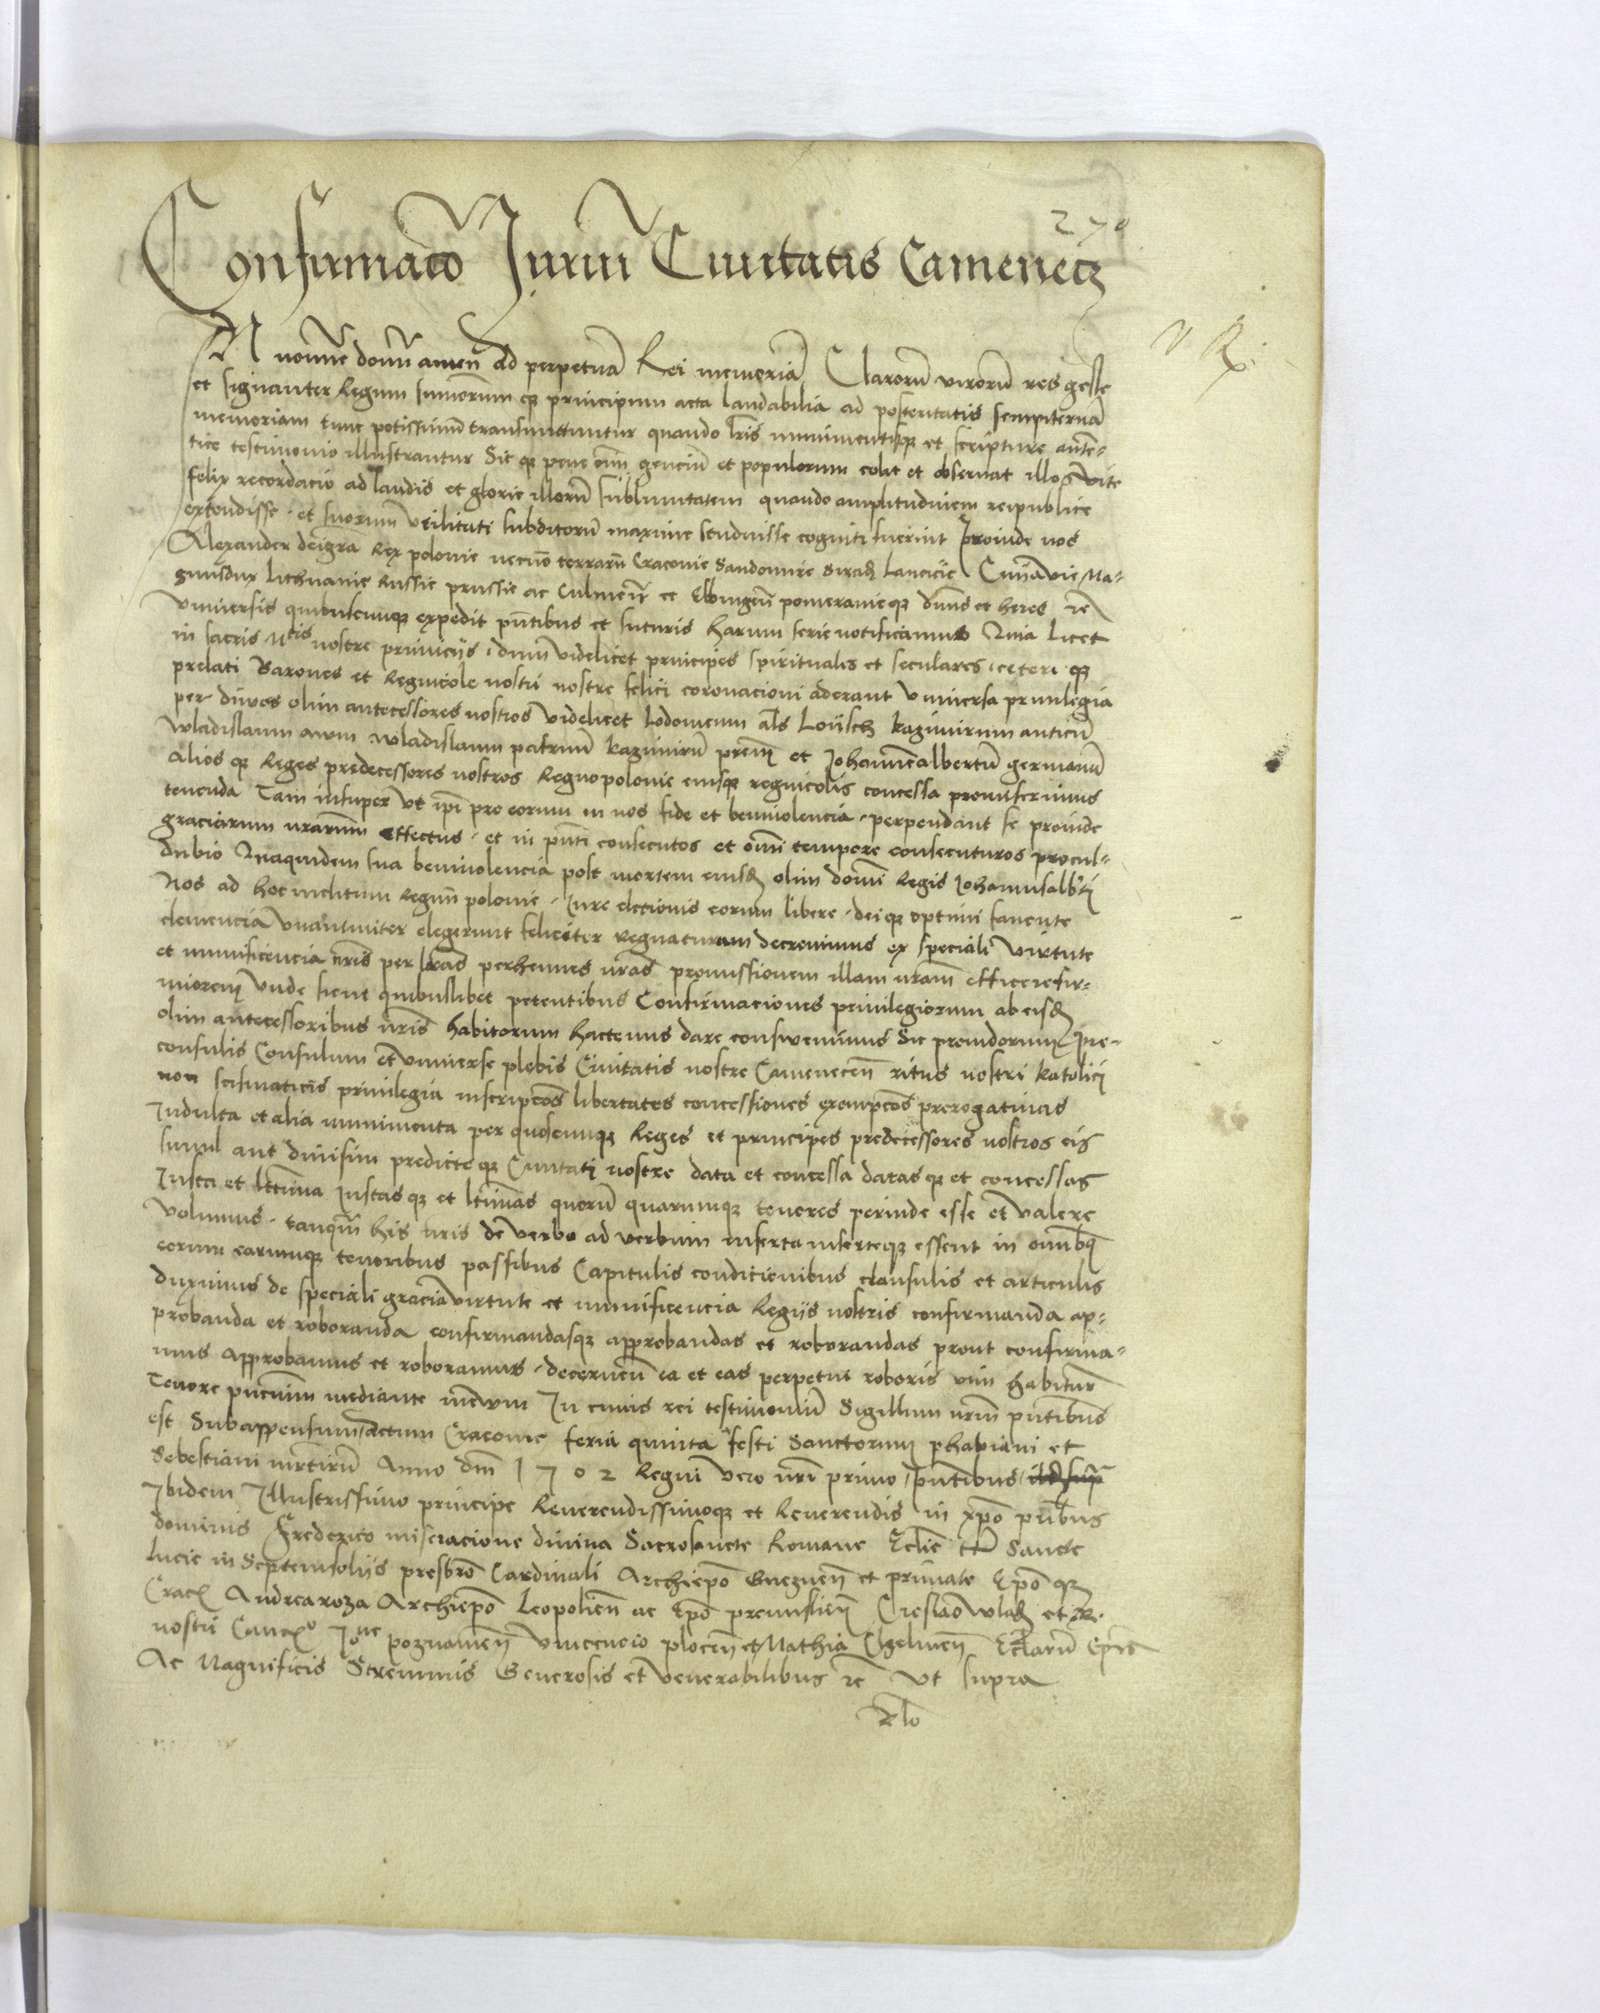 270
Confirmatō Juriū Civitatis Camenecz
N noīne domī amen̄ ad perpetuā Rei memoriā Clarorū virorū res geste
et signanter Regum summorum qȝ principum acta laudabilia ad posteritatis sempiternā
memoriam tunc potissimū transmittuntur quando lrīs munimentisqȝ et scripture auten-
tice testimonio illustrantur Sic qȝ pene oīm genciū et populorum colit et observat illos vite
felix recordacio ad laudis et glorie illorū sublimitatem quando amplitudinem reipublice
extendisse et suorum utilitati subditorū maxime studuisse cogniti fuerint Proinde nos
Alexander dei gra Rex polonie necnō terrarū Cracovie Sandomirie Siradȝ Lancicie Cuyavie Ma-
gnusdux Lithuanie Russie prussie ac Culmen̄ et Elbingen̄ pomeranieqȝ dūns et heres
Universis quibuscunqȝ expedit pn̄tibus et futuris harum serie notificamus Quia licet
in sacris Mtis nostre primiciis dum videlicet principes spirituales et seculares ceteri qȝ
prelati Barones et Regnicole nostri nostre felici coronacioni aderant Universa privilegia
per divos olim antecessores nostros videlicet lodovicum als Loysch kazimirum anticū
wladislaum avum wladislaum patruū kazimirū prem̄ et Johannēalbertū germanū
alios qȝ Reges predecessores nostros Regno polonie eiusqȝ regnicolis concessa promiserimus
tenenda Tam insuper ut ipi pro eorum in nos fide et benivolencia perpendant se proinde
graciarum nrarum effectus et in pn̄ti consecutos et omni tempore consecuturos procul-
dubio Quaquidem sua benivolencia post mortem eiusdȝ olim domi Regis Johannisalb'ti
Nos ad hoc inclitum Regnū polonie Jure electionis eorum libere dei qȝ optimi favente
clemencia unanimiter elegerunt feliciter regnaturum decrevimus ex speciali virtute
et munificencia nris per lras perhennes nras promissionem illam nram efficere fir-
miorem unde sicut quibuslibet petentibus Confirmaciones privilegiorum ab eisdȝ
olim antecessoribus nris habitorum hactenus dare consuevimus Sic providorum pre-
consulis Consulum et universe plebis Civitatis nostre Camenecen̄ ritus nostri katolici
non scismaticis privilegia inscripcōes libertates concessiones exempcōes prerogativas
Indulta et alia munimenta per quoscunqȝ Reges et principes predecessores nostros eis
simul aut divisim predicte qȝ Civitati nostre data et concessa datas qȝ et concessas
Justa et ltīma Justas qȝ et ltīmas quorū quarumqȝ tenores perinde esse et valere
volumus tanquā his nris de verbo ad verbum inserta inserteqȝ essent in omībqȝ
eorum earumqȝ tenoribus passibus Capitulis condicionibus clausulis et articulis
duximus de speciali gracia virtute et munificencia Regiis nostris confirmanda ap-
probanda et roboranda confirmandasqȝ approbandas et roborandas prout confirma-
mus approbamus et roboramus decernen̄ ea et eas perpetue roboris vim habiturā
Tenore pn̄cium mediante In cuius rei testimoniū Sigillum nrm̄ pn̄tibus
est Subappensum Actum Cracovie feria quinta festi Sanctorum phabiani et
Sebestiani mrtirū Anno dm̄ 1702 Regni vero nri primo pn̄tibus
Ibidem Illustrissimo principe Reverendissimoqȝ et Reverendis in xpo prībus
dominis Frederico miseracione divina Sacrosancte Romane Eclie ttt Sancte
Lucie in Septemsoliis presbro Cardinali Archiepo Gneznen̄ et primate Epō qȝ
Crac Andrea roza Archiepō Leopolien̄ ac Epō premislien̄ Creslao wladȝ et R.
nostri Cancro Jone poznanien̄ Vincencio plocen̄ et Mathia Chelmen̄ Eclarū Epis
Ac Magnificis Strennuis Generosis et venerabilibus ut supra